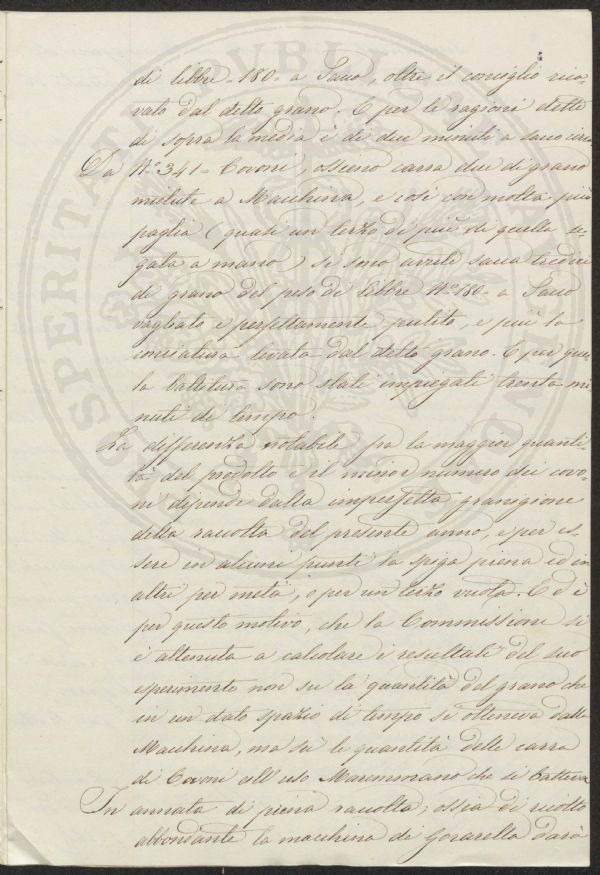 di libbre = 180 = a Sacco, oltre il conciglio rica-
vato dal detto grano. E per le ragioni dette
di sopra la media è di due minuti a sacco circa
Da N.° 341 = Covoni, ossieno carra due di grano
mietute a Macchina, e così con molta più
paglia (quasi un terzo di più di quella se-
gata a mano) si sono avute sacca tredici
di grano del peso di libbre N.° 180. a Sacco
vagliato e perfettamente pulito, e più la
conciatura levata dal detto grano. E per que-
sta battitura sono stati impiegati trenta mi-
nuti di tempo.
La differenza notabile fra la maggior quanti-
tà del prodotto e il minor numero dei covo-
ni dipende dalla imperfetta granigione
della raccolta del presente anno, e per es-
sere in alcuni punti la spiga piena ed in
altri per metà, o per un terzo vuota. Ed è
per questo motivo, che la Commissione si
è attenuta a calcolare i resultati del suo
esperimento non su la quantità del grano che
in un dato spazio di tempo si otteneva dalla
Macchina, ma su le quantità delle carra
di Covoni all'uso Maremmano che si batteva
In annata di piena raccolta, ossia di ricolto
abbondante la macchina di Gorarella darà